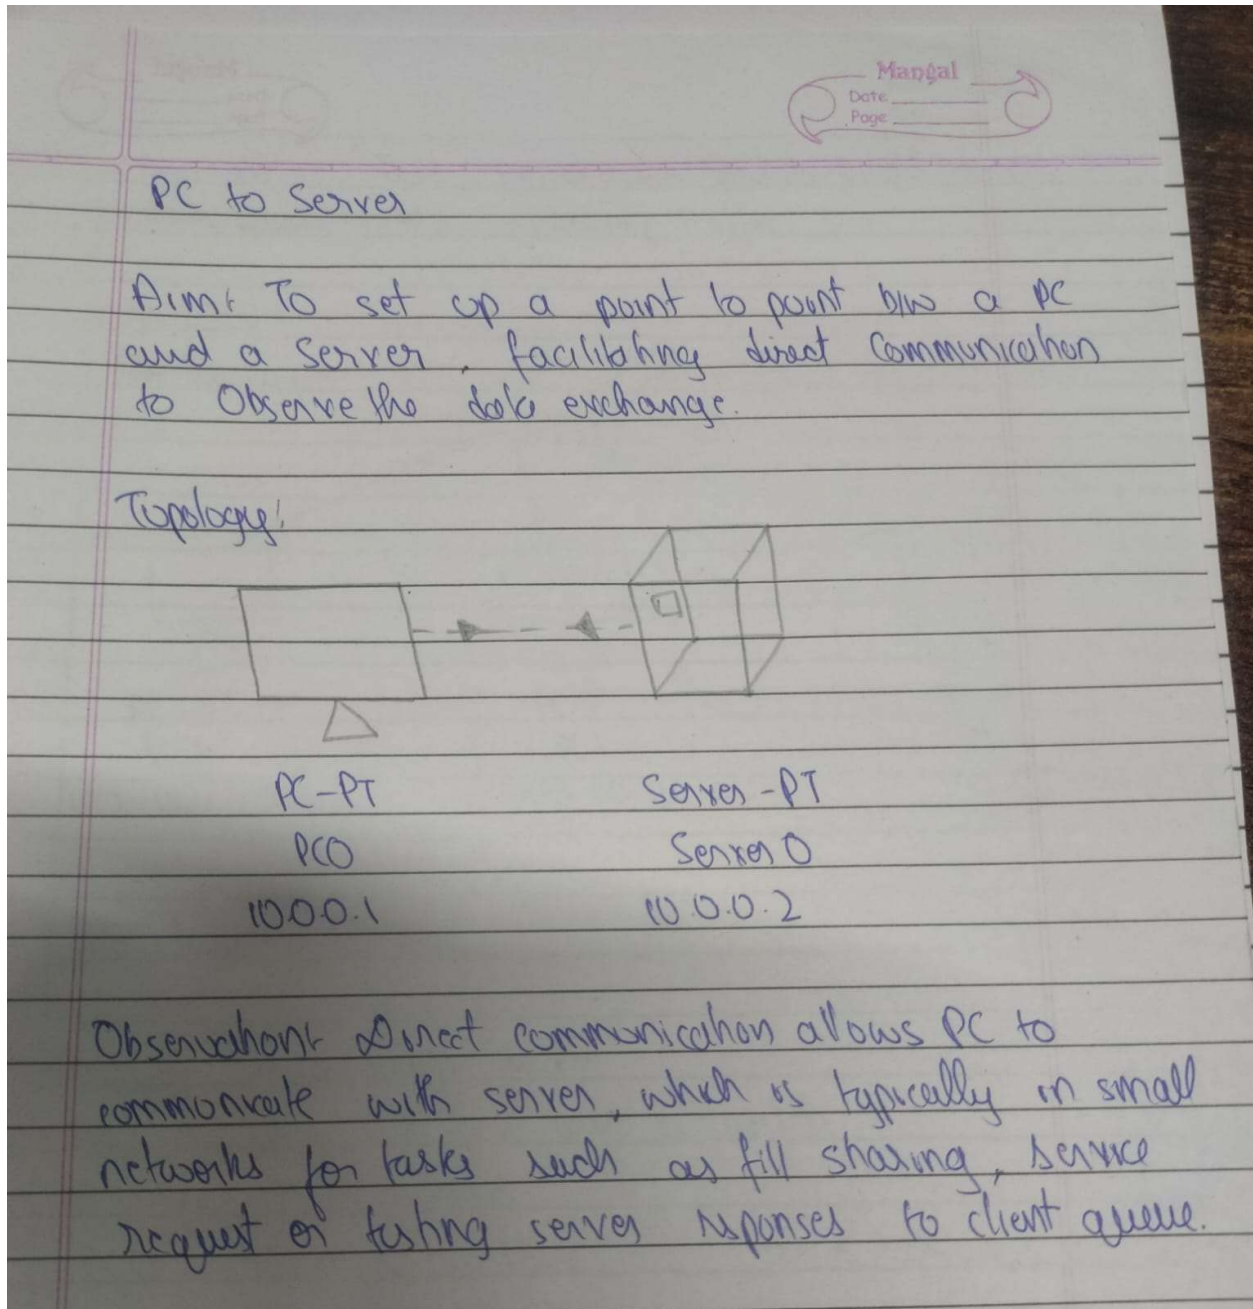 Mangal
Date
Page
PC to Server
Aim: To set up a point to point b/w a PC
and a Server, facilitating direct Communication
to Observe the data exchange.
Topology:
PC-PT
Server-PT
PC0
Server 0
10.0.0.1
10.0.0.2
Observation: Direct communication allows PC to
commonicate with server, which is typically in small
networks for tasks such as fill sharing, service
request or testing server reponses to client queue.